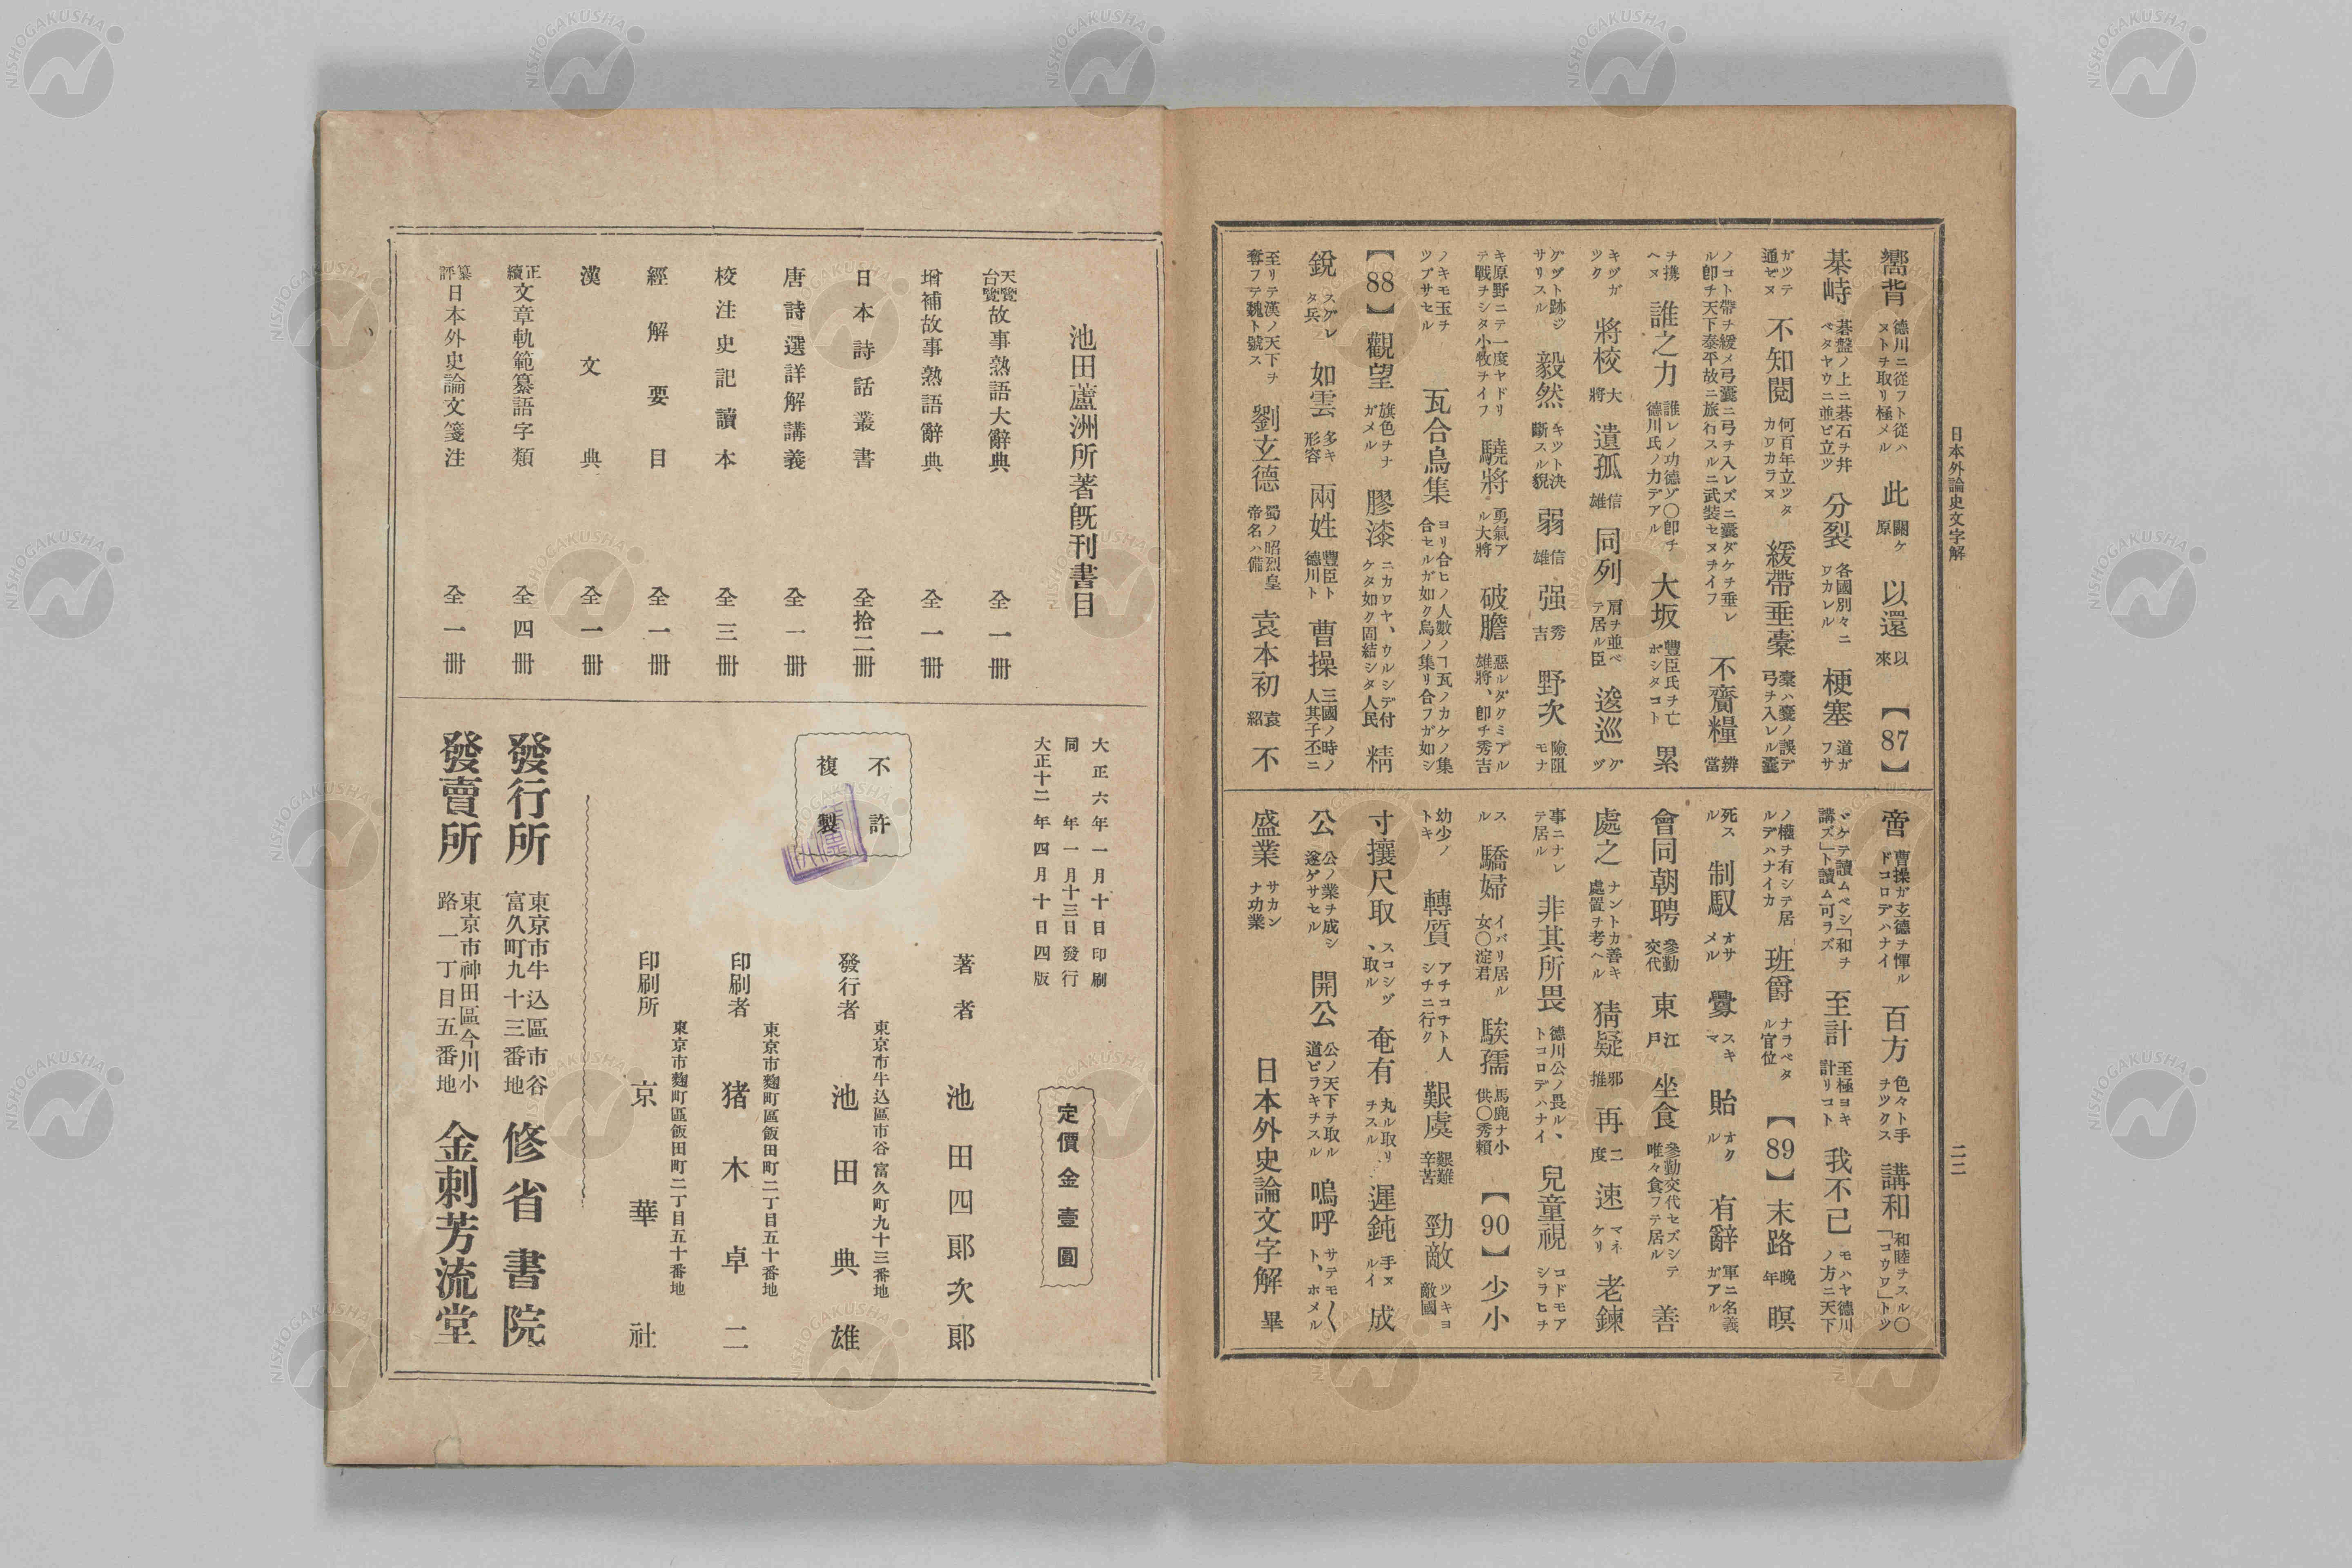 日本外論史文字解
二二
嚮背 德川ニ從フト從ハヌトチ取リ極メル 此 關ケ原 以還 以來 【87】
棊峙 碁盤ノ上ニ碁石チ井ベタヤウニ並ビ立ツ 分裂 各國別々ニワカレル 梗塞 道ガフサ
ガツテ通ゼヌ 不知閱 何百年立ツタカワカラヌ 緩帶垂櫜 櫜ハ櫜ノ誤デ弓チ入レル囊
ノコト帶チ緩メ弓囊ニ弓チ入レズニ囊ダケチ垂レル卽チ天下泰平故ニ旅行スルニ武裝セヌチイフ 不齎糧 辨當
チ携ヘヌ 誰之力 誰レノ功德ゾ〇卽チ德川氏ノ力デアル 大坂 豐臣氏チ亡ボシタコト 累
キヅガツク 將校 大將 遺孤 信雄 同列 肩チ並ベテ居ル臣 逡巡 グヅ
グヅト跡ジサリスル 毅然 キツト決斷スル貌 弱 信雄 强 秀吉 野次 險阻モナ
キ原野ニテ一度ヤドリテ戰チシタ小牧チイフ 驍將 勇氣アル大將 破膽 惡ルダクミアル雄將、卽チ秀吉
ノキモ玉チツブサセル 瓦合烏集 ヨリ合ヒノ人數ノヿ瓦ノカケノ集合セルガ如ク烏ノ集リ合フガ如シ
【88】 觀望 旗色チナガメル 膠漆 ニカワヤ、ウルシデ付ケタ如ク固結シタ人民 精
銳 スグレタ兵 如雲 多キ形容 兩姓 豐臣ト德川ト 曹操 三國ノ時ノ人其子丕ニ
至リテ漢ノ天下チ奪フテ魏ト號ス 劉玄德 蜀ノ昭烈皇帝名ハ備 袁本初 袁紹 不
啻 曹操ガ玄德チ憚ルドコロデハナイ 百方 色々ト手チツクス 講和 和睦チスル〇「コウワ」トツ
ヾケテ讀ムベシ「和チ講ズ」ト讀ム可ラズ 至計 至極ヨキ計リコト 我不已 モハヤ德川ノ方ニ天下
ノ權チ有シテ居ルデハナイカ 班爵 ナラベタル官位 【89】 末路 晚年 瞑
死スル 制馭 オサメル 釁 スキマ 貽 オクル 有辭 軍ニ名義ガアル
會同朝聘 參勤交代 東 江戶 坐食 參勤交代セズシテ唯々食フテ居ル 善
處之 ナントカ善キ處置チ考ヘル 猜疑 邪推 再 二度 速 マネケリ 老鍊
事ニナレテ居ル 非其所畏 德川公ノ畏ル、トコロデハナイ 兒童視 コドモアシラヒチ
スル 驕婦 イバリ居ル女〇淀君 騃孺 馬鹿ナ小供〇秀賴 【90】 少小
幼少ノトキ 轉質 アチコチト人シチニ行ク 艱虞 艱難辛苦 勁敵 ツキヨ敵國
寸攘尺取 スコシヅ、取ル 奄有 丸ル取リチスル 遲鈍 手ヌルイ 成
公 公ノ業チ成シ遂ゲサセル 開公 公ノ天下チ取ル道ビラキチスル 嗚呼 サテモ〱ト、ホメル
盛業 サカンナ功業 日本外史論文字解 畢
池田蘆洲所著旣刊書目
天覽台覽故事熟語大辭典 全一冊
增補故事熟語辭典 全一冊
日本詩話叢書 全拾二冊
唐詩選詳解講義 全一冊
校注史記讀本 全三冊
經解要目 全一冊
漢文典 全一冊
正續文章軌範纂語字類 全四冊
纂評日本外史論文箋注 全一冊
大正六年一月十日印刷
同年一月十三日發行
大正十二年四月十日四版
定價金壹圓
不許複製
著者 池田四郞次郞
東京市牛込區市谷富久町九十三番地
發行者 池田典雄
東京市麴町區飯田町二丁目五十番地
印刷者 猪木卓二
東京市麴町區飯田町二丁目五十番地
印刷所 京華社
發行所 東京市牛込區市谷富久町九十三番地 修省書院
發賣所 東京市神田區今川小路一丁目五番地 金刺芳流堂
NISHOGAKUSHA